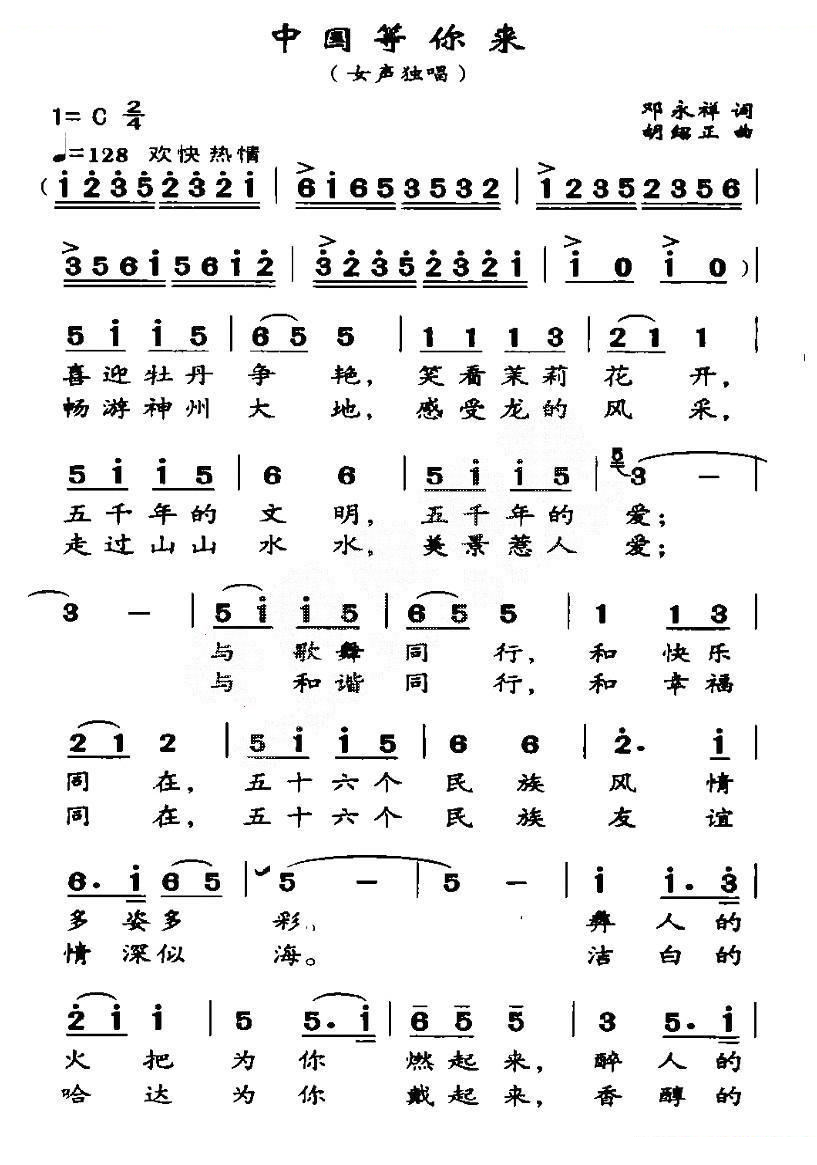 中国等你来
（女声独唱）
1= C 2/4
邓永祥 词
胡绍正 曲
♩=128 欢快热情
（ i̇ 2̇ 3̇ 5̇ 2̇ 3̇ 2̇ i̇ | 6 i̇ 6 5 3 5 3 2 | 1 2 3 5 2 3 5 6 |
3 5 6 i̇ 5 6 i̇ 2̇ | 3̇ 2̇ 3̇ 5̇ 2̇ 3̇ 2̇ i̇ | i̇ 0 i̇ 0 ）|
5 i̇ i̇ 5 | 6 5 5 | 1 1 1 3 | 2 1 1 |
喜迎牡丹 争 艳， 笑看茉莉 花 开，
畅游神州 大 地， 感受龙的 风 采，
5 i̇ i̇ 5 | 6 6 | 5 i̇ i̇ 5 | 5 3 - |
五千年的 文 明， 五千年的 爱；
走过山山 水 水， 美景惹人 爱；
3 - | 5 i̇ i̇ 5 | 6 5 5 | 1 1 3 |
与 歌舞 同 行， 和 快乐
与 和谐 同 行， 和 幸福
2 1 2 | 5 i̇ i̇ 5 | 6 6 | 2̇. i̇ |
同 在， 五十六个 民 族 风 情
同 在， 五十六个 民 族 友 谊
6. i̇ 6 5 | 5 - | 5 - | i̇ i̇. 3̇ |
多姿多 彩， 彝 人的
情深似 海。 洁 白的
2̇ i̇ i̇ | 5 5. i̇ | 6 5 5 | 3 5. i̇ |
火 把 为 你 燃起来， 醉 人的
哈 达 为 你 戴起来， 香 醇的